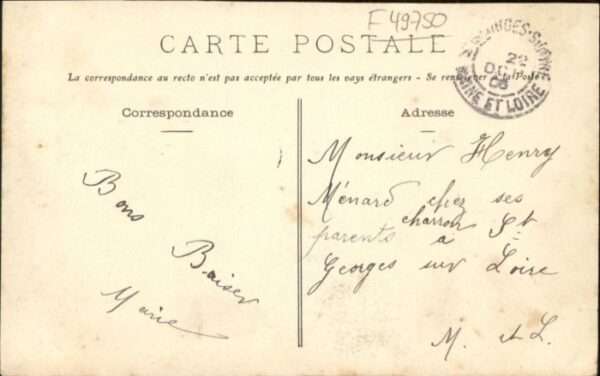 F 49750
CARTE POSTALE
La correspondance au recto n'est pas acceptée par tous les pays étrangers - Se renseigner à la Poste
Correspondance
Adresse
22
MAINE ET LOIRE
Bons
Baiser
Marie
Monsieur Henry
Ménard chez ses
charron
parents à St
Georges sur Loire
M. et L.